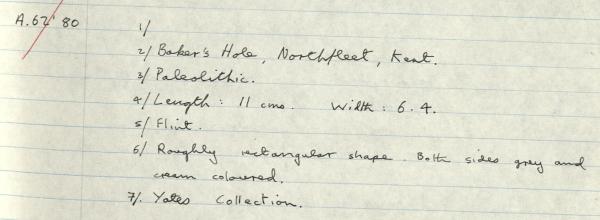 A.62' 80
1/
2/ Baker's Hole, Northfleet, Kent.
3/ Paleolithic.
4/ Length: 11 cms. Width: 6.4.
5/ Flint.
6/ Roughly rectangular shape. Both sides grey and
cream coloured.
7/. Yates Collection.